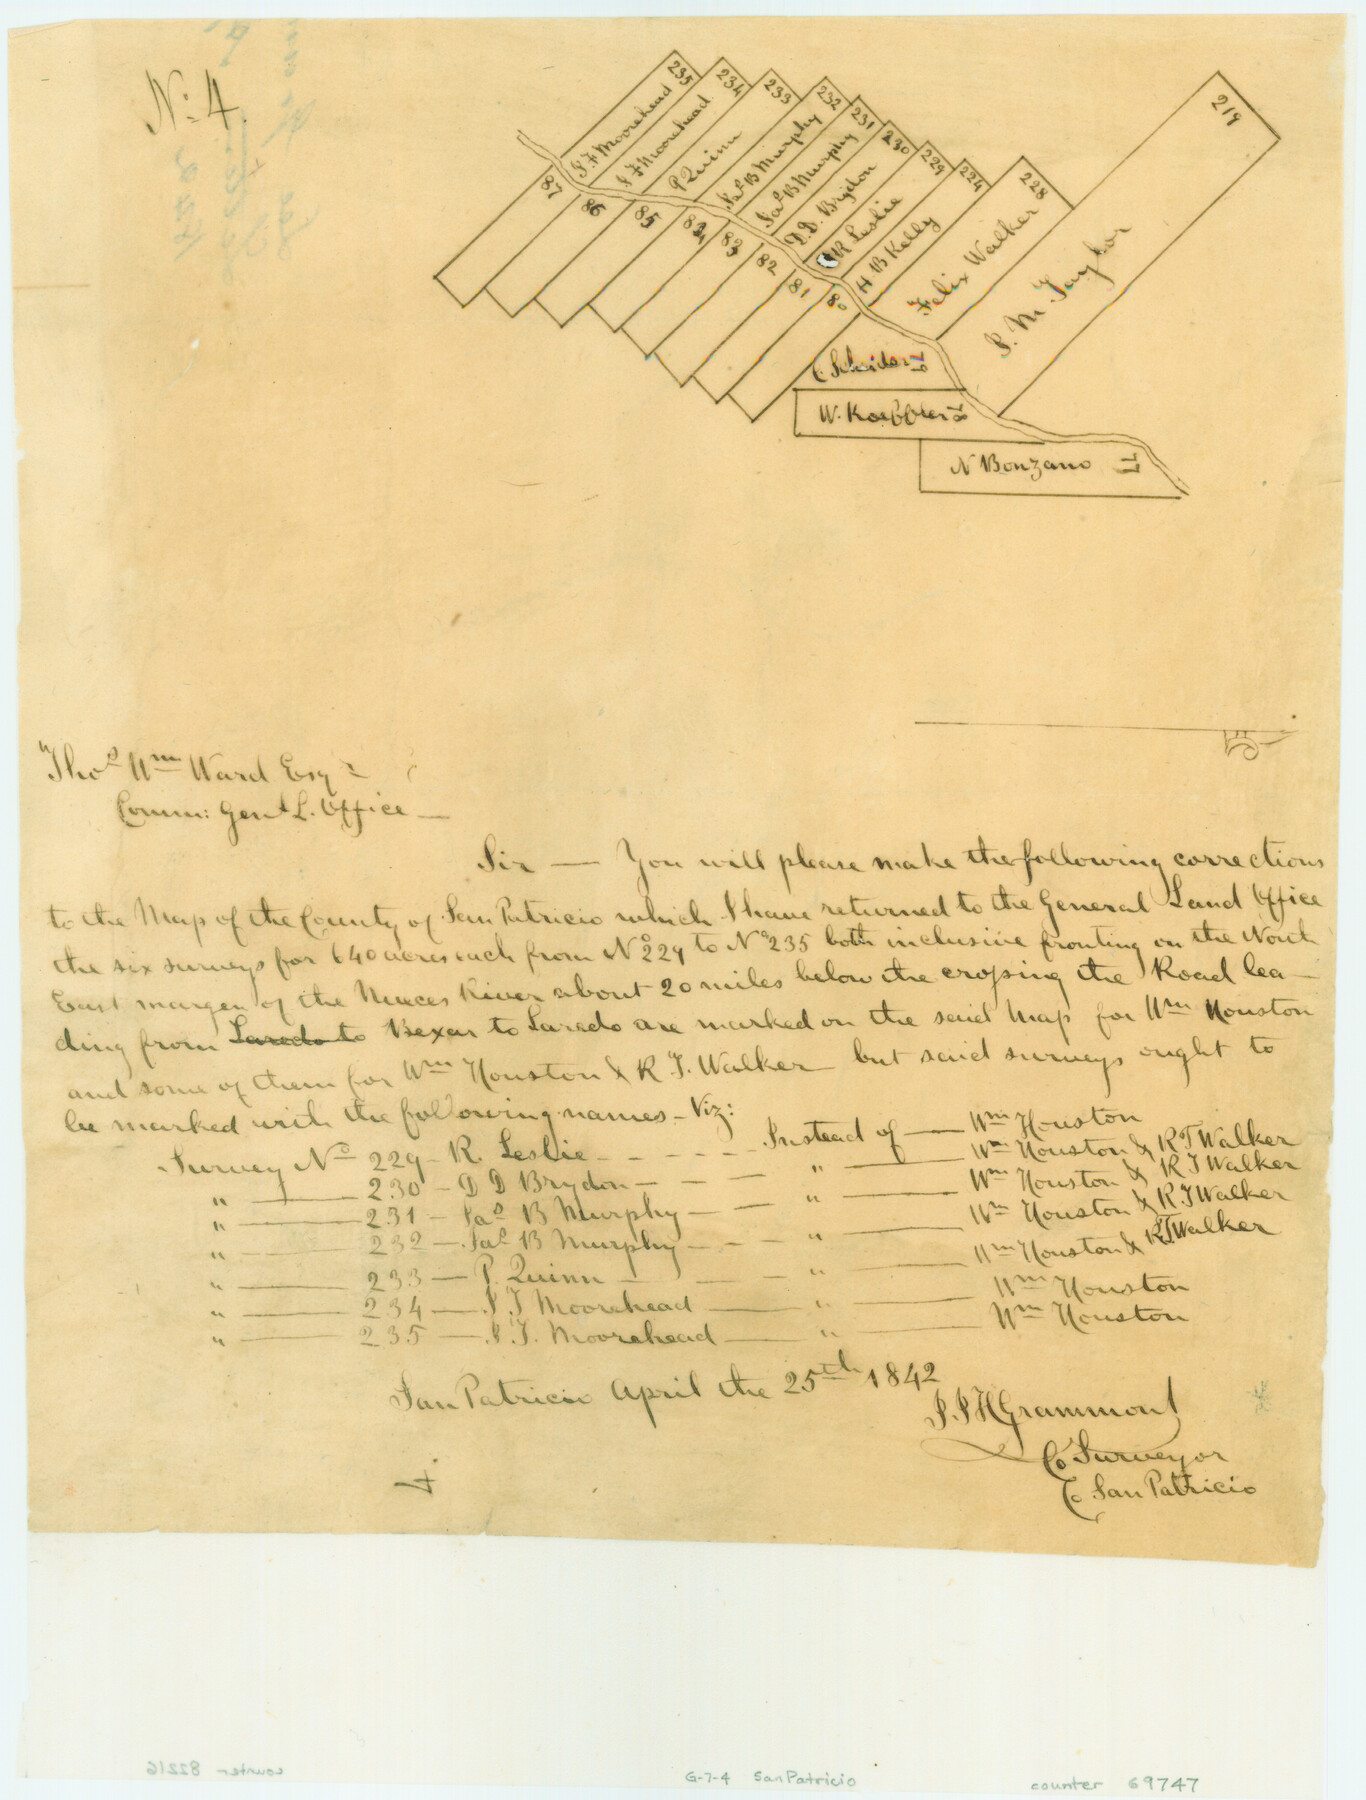 No: 4.
235
S. F Moorehead
234
S F Moorehead
233
P Quinn
232
Jas B Murphy
231
Jas B Murphy
230
D. D. Brydon
229
R Leslie
224
H B Kelly
228
Felix Walker
219
S. M. Taylor
87
86
85
84
83
82
81
80
W. Koebbler 18
N Bonzano 17
Thos Wm Ward Esqr
Comm: Genl L. Office —
Sir — You will please make the following corrections
to the Map of the County of San Patricio which I have returned to the General Land Office
the six surveys for 640 acres each from No 229 to No 235 both inclusive fronting on the North
East margen of the Nueces River about 20 miles below the cropsing the Road lea-
ding from Laredo to Bexar to Laredo are marked on the said Map for Wm Houston
and some of them for Wm Houston & R. T. Walker but said surveys ought to
be marked with the following names - Viz:
Survey No 229 - R. Leslie - - - - - Instead of — Wm Houston
" — 230 - D D Brydon - - - " — Wm Houston & R T Walker
" — 231 - Jas B Murphy - - " — Wm Houston & R T Walker
" — 232 - Jas B Murphy - - - " — Wm Houston & R T Walker
" — 233 — P. Quinn — - - " — Wm Houston & R T Walker
" — 234 — S T Moorehead — " — Wm Houston
" — 235 — S. T. Moorehead — " — Wm Houston
San Patricio April the 25th 1842
S. S H Grammont
Co Surveyor
C. San Patricio
counter 82216
G-7-4 San Patricio
counter 69747